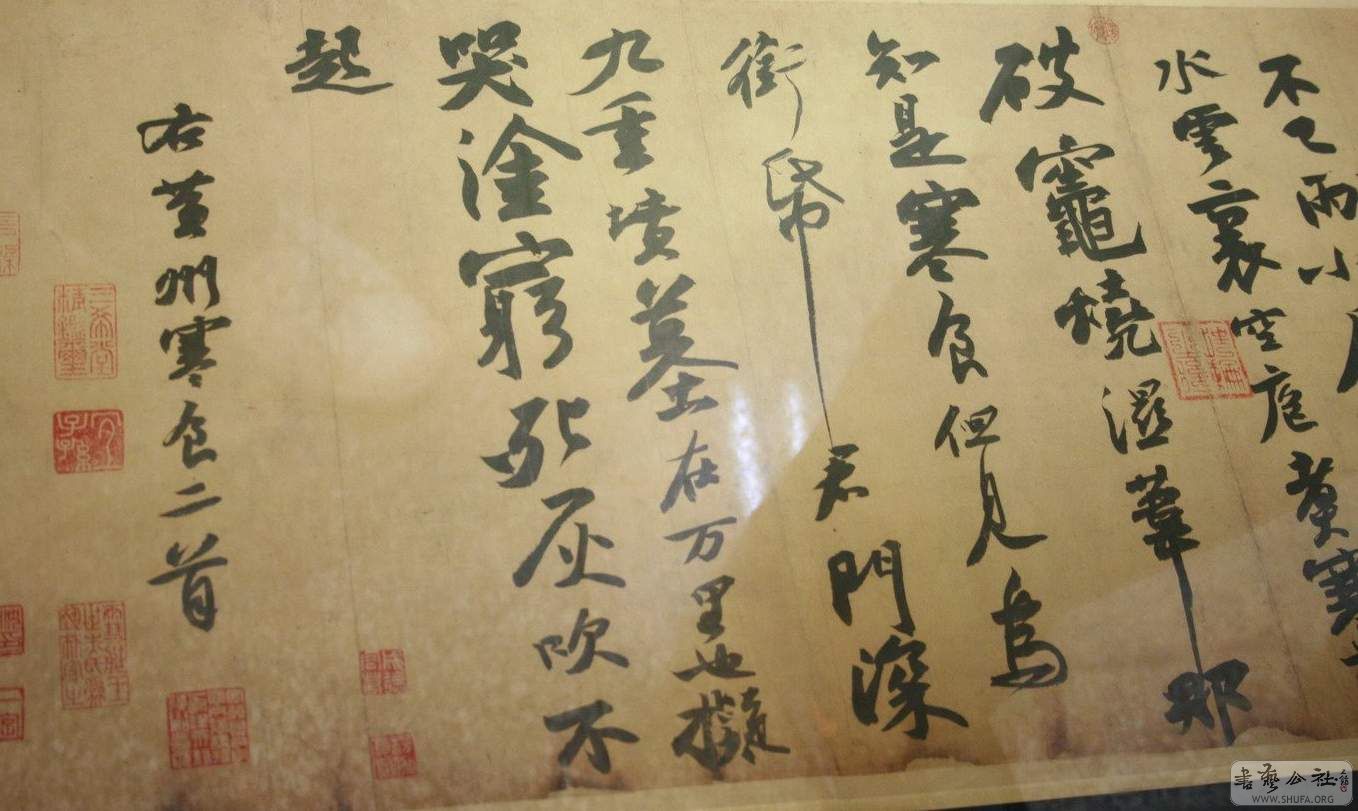 不已雨小
水雲裏空庖煮寒
破竈燒濕葦那
知是寒食但見烏
銜帋君門深
九重墳墓在万里也擬
哭塗窮死灰吹不
起
右黃州寒食二首
三希堂精鑑璽
宜子孫
書藝公社
WWW.SHUFA.ORG